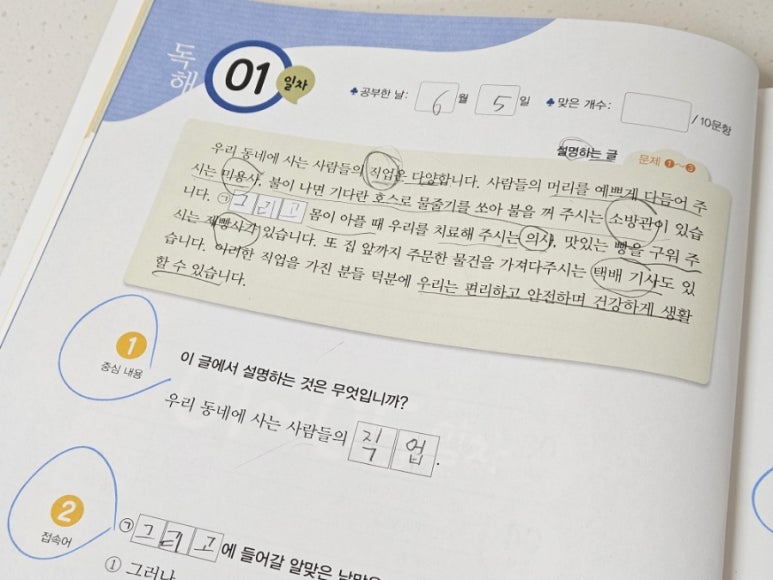 독해
01 일차
♣ 공부한 날: 6 월 5 일 ♣ 맞은 개수: / 10문항
설명하는 글 문제 ❶~❸
우리 동네에 사는 사람들의 직업은 다양합니다. 사람들의 머리를 예쁘게 다듬어 주
시는 미용사, 불이 나면 기다란 호스로 물줄기를 쏘아 불을 꺼 주시는 소방관이 있습
니다. ㉠ 그리고 몸이 아플 때 우리를 치료해 주시는 의사, 맛있는 빵을 구워 주
시는 제빵사가 있습니다. 또 집 앞까지 주문한 물건을 가져다주시는 택배 기사도 있
습니다. 이러한 직업을 가진 분들 덕분에 우리는 편리하고 안전하며 건강하게 생활
할 수 있습니다.
1
중심 내용
이 글에서 설명하는 것은 무엇입니까?
우리 동네에 사는 사람들의 직업.
2
접속어
㉠ 그리고에 들어갈 알맞은
① 그러나